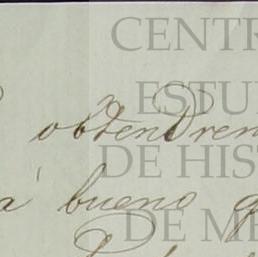 CENTR
ESTU
obtendren
DE HIS
a bueno g
DE ME